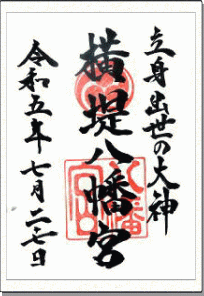 立身出世の大神
横堤八幡宮
令和五年七月二七日